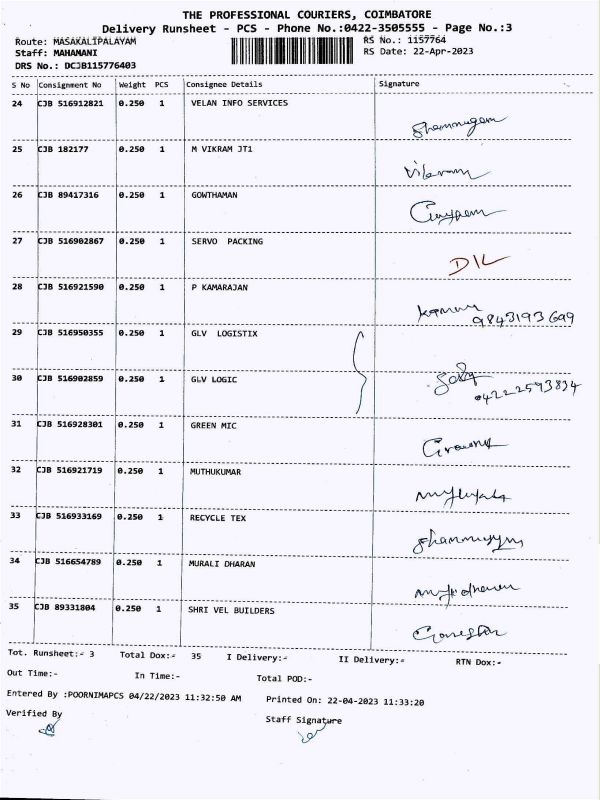 THE PROFESSIONAL COURIERS, COIMBATORE
Delivery Runsheet - PCS - Phone No.:0422-3505555 - Page No.:3
Route: MASAKALIPALAYAM RS No.: 1157764
Staff: MAHAMANI RS Date: 22-Apr-2023
DRS No.: DCJB115776403
S No Consignment No Weight PCS Consignee Details Signature
24 CJB 516912821 0.250 1 VELAN INFO SERVICES Shanmugam
25 CJB 182177 0.250 1 M VIKRAM JT1 Vikram
26 CJB 89417316 0.250 1 GOWTHAMAN
27 CJB 516902867 0.250 1 SERVO PACKING D/L
28 CJB 516921590 0.250 1 P KAMARAJAN
9843193699
29 CJB 516950355 0.250 1 GLV LOGISTIX
30 CJB 516902859 0.250 1 GLV LOGIC
04222593834
31 CJB 516928301 0.250 1 GREEN MIC
32 CJB 516921719 0.250 1 MUTHUKUMAR
33 CJB 516933169 0.250 1 RECYCLE TEX
34 CJB 516654789 0.250 1 MURALI DHARAN
35 CJB 89331804 0.250 1 SHRI VEL BUILDERS
Tot. Runsheet:- 3 Total Dox:- 35 I Delivery:- II Delivery:- RTN Dox:-
Out Time:- In Time:- Total POD:-
Entered By :POORNIMAPCS 04/22/2023 11:32:50 AM Printed On: 22-04-2023 11:33:20
Verified By Staff Signature